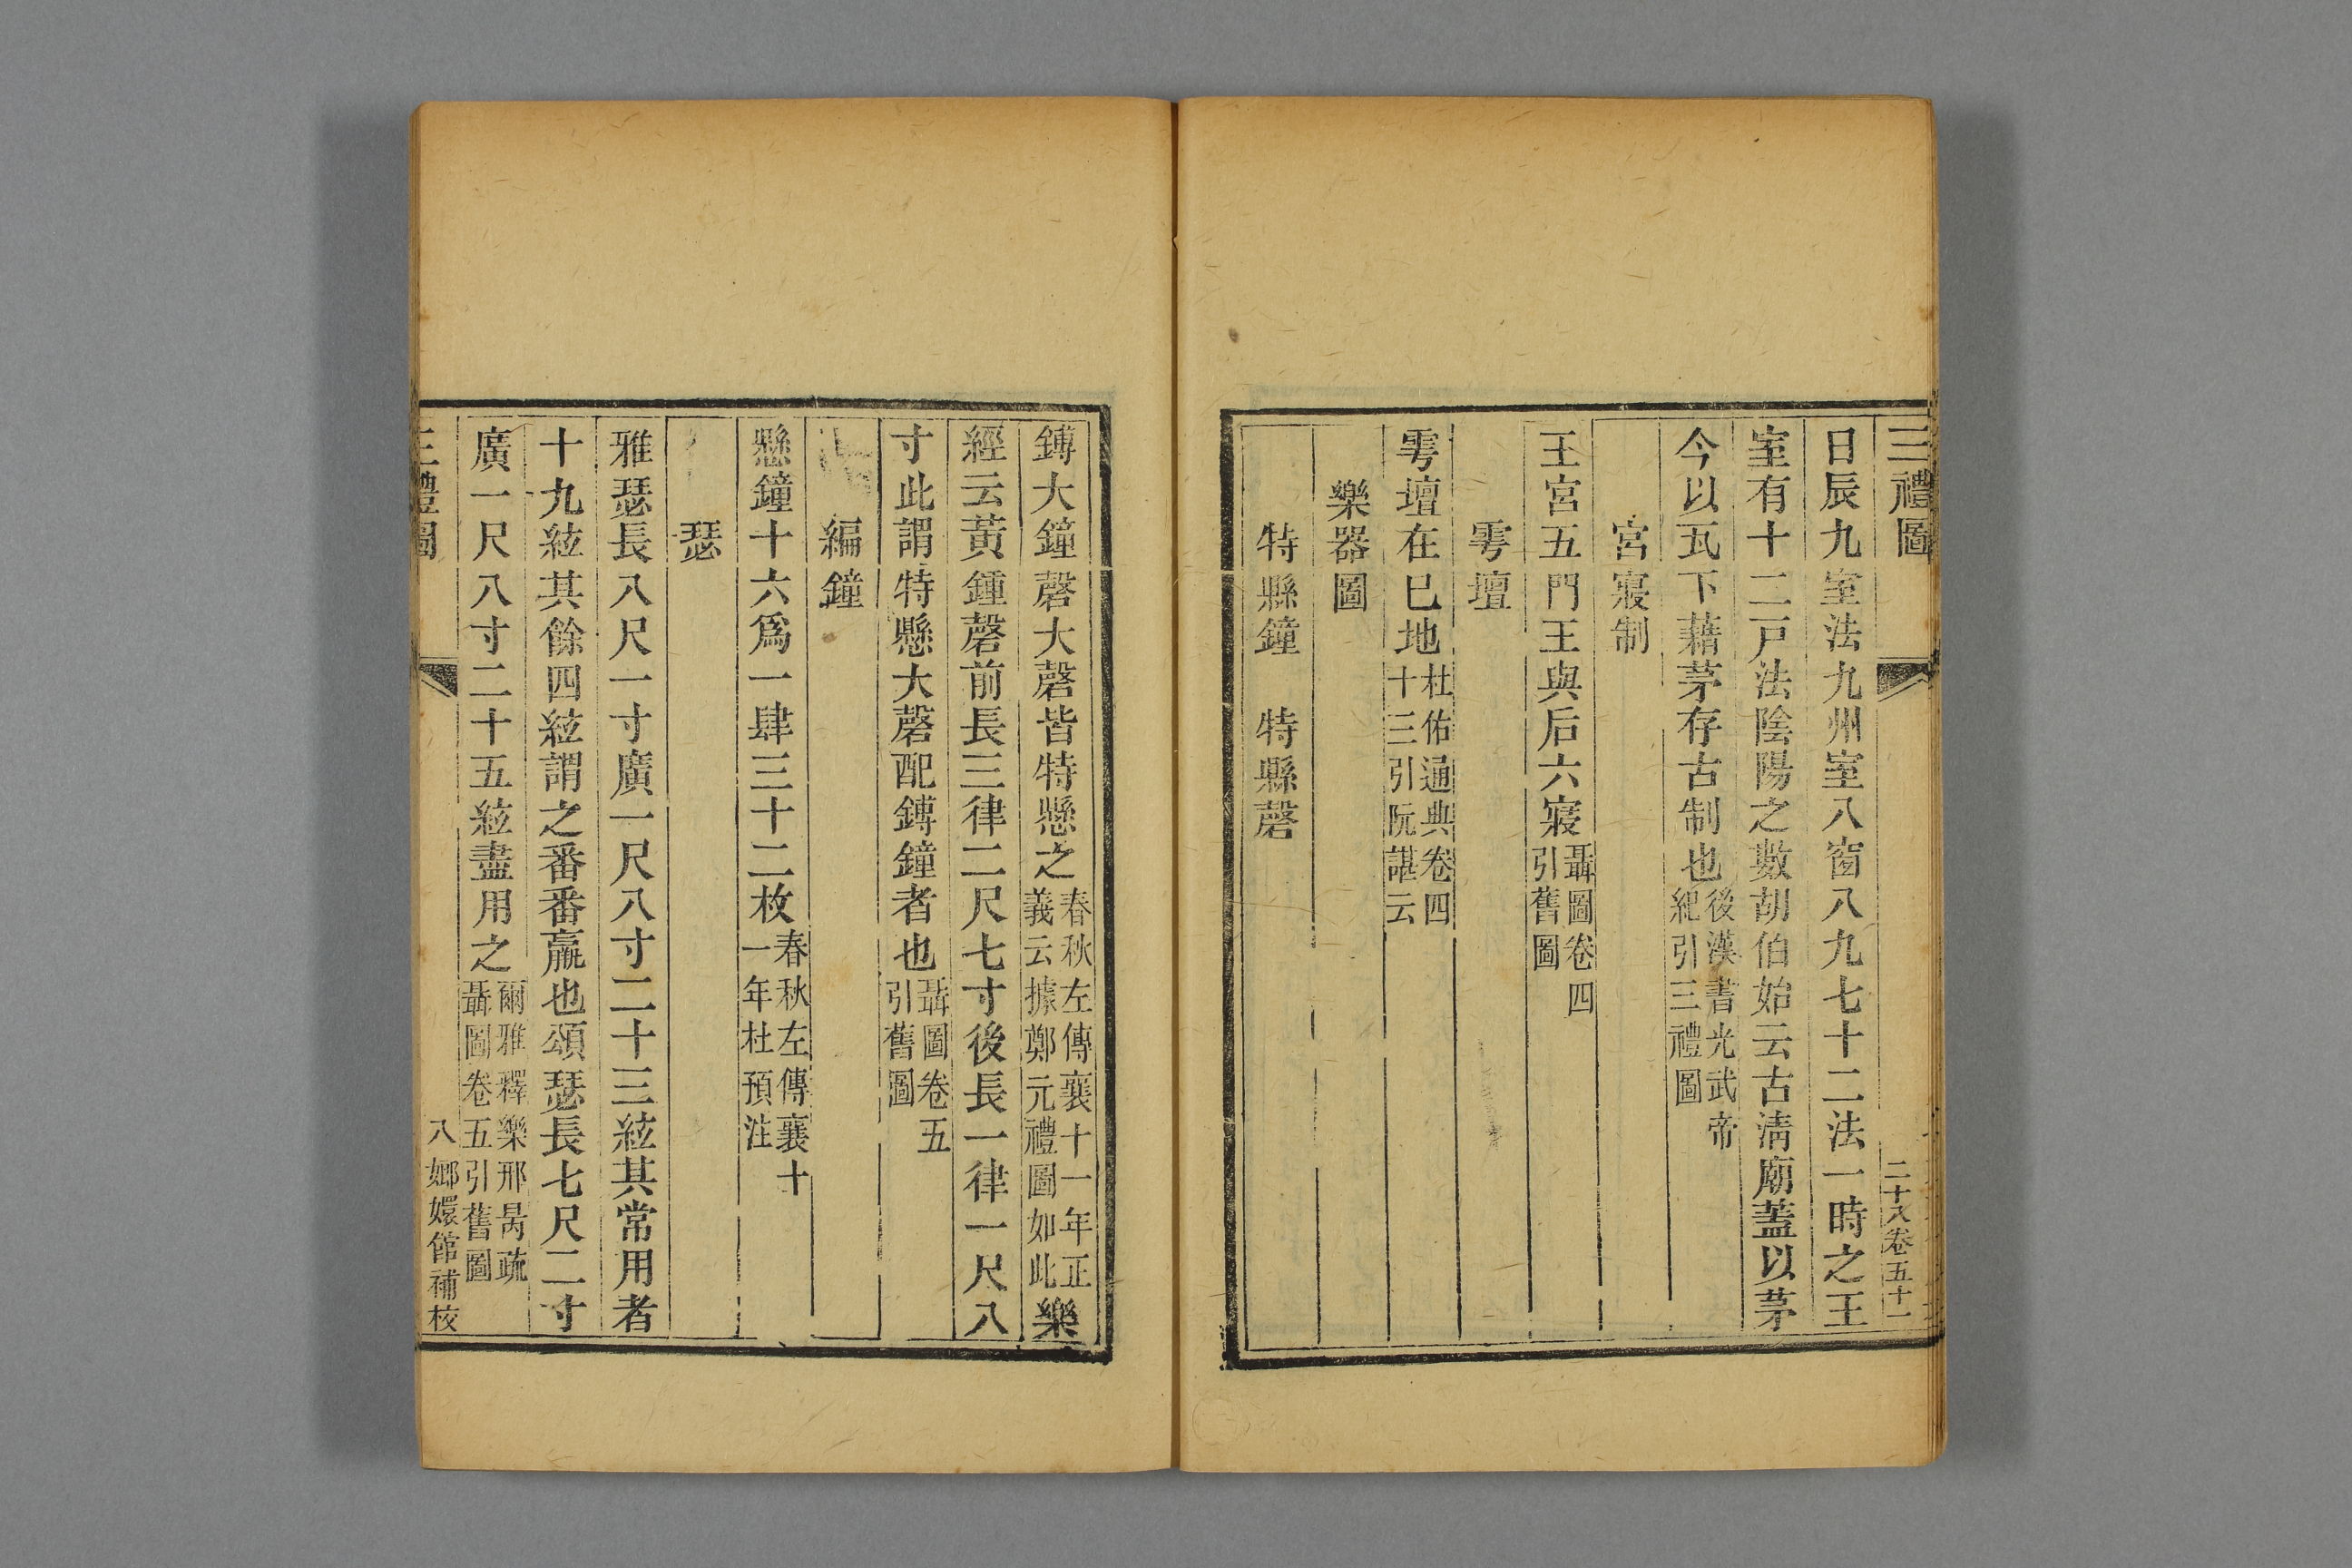 三禮圖 二十八卷五十一
日辰九室法九州室八窗八九七十二法一時之王
室有十二戸法陰陽之數胡伯始云古淸廟蓋以茅
今以瓦下藉茅存古制也後漢書光武帝
紀引三禮圖
宮寢制
王宮五門王與后六寢聶圖卷四
引舊圖
雩壇
雩壇在巳地杜佑通典卷四
十三引阮諶云
樂器圖
特縣鐘 特縣磬
鎛大鐘磬大磬皆特懸之春秋左傳襄十一年正
義云據鄭元禮圖如此樂
經云黃鍾磬前長三律二尺七寸後長一律一尺八
寸此謂特懸大磬配鎛鐘者也聶圖卷五
引舊圖
編鐘
懸鐘十六爲一肆三十二枚春秋左傳襄十
一年杜預注
瑟
雅瑟長八尺一寸廣一尺八寸二十三絃其常用者
十九絃其餘四絃謂之番番羸也頌瑟長七尺二寸
廣一尺八寸二十五絃盡用之爾雅釋樂邢昺疏
聶圖卷五引舊圖
三禮圖 八 嫏嬛館補校